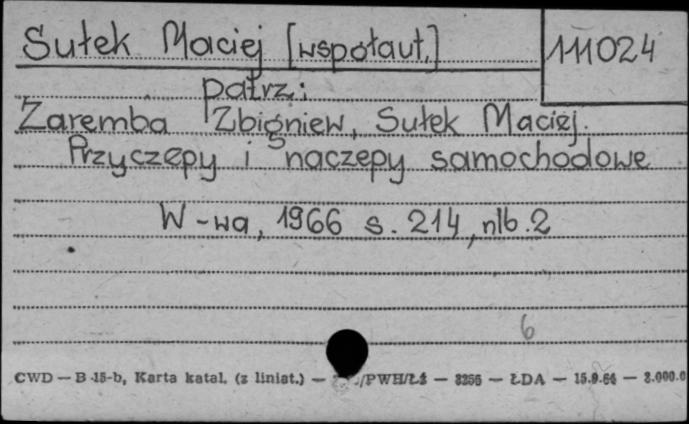 Sułek Maciej [współaut.] 111024
patrz:
Zaremba Zbigniew, Sułek Maciej.
Przyczepy i naczepy samochodowe
W-wa, 1966 s. 214, nlb. 2
6
CWD — B-15-b, Karta katal. (z liniat.) — /PWH/Łż — 3256 — ŁDA — 15.9.64 — 3.000.0